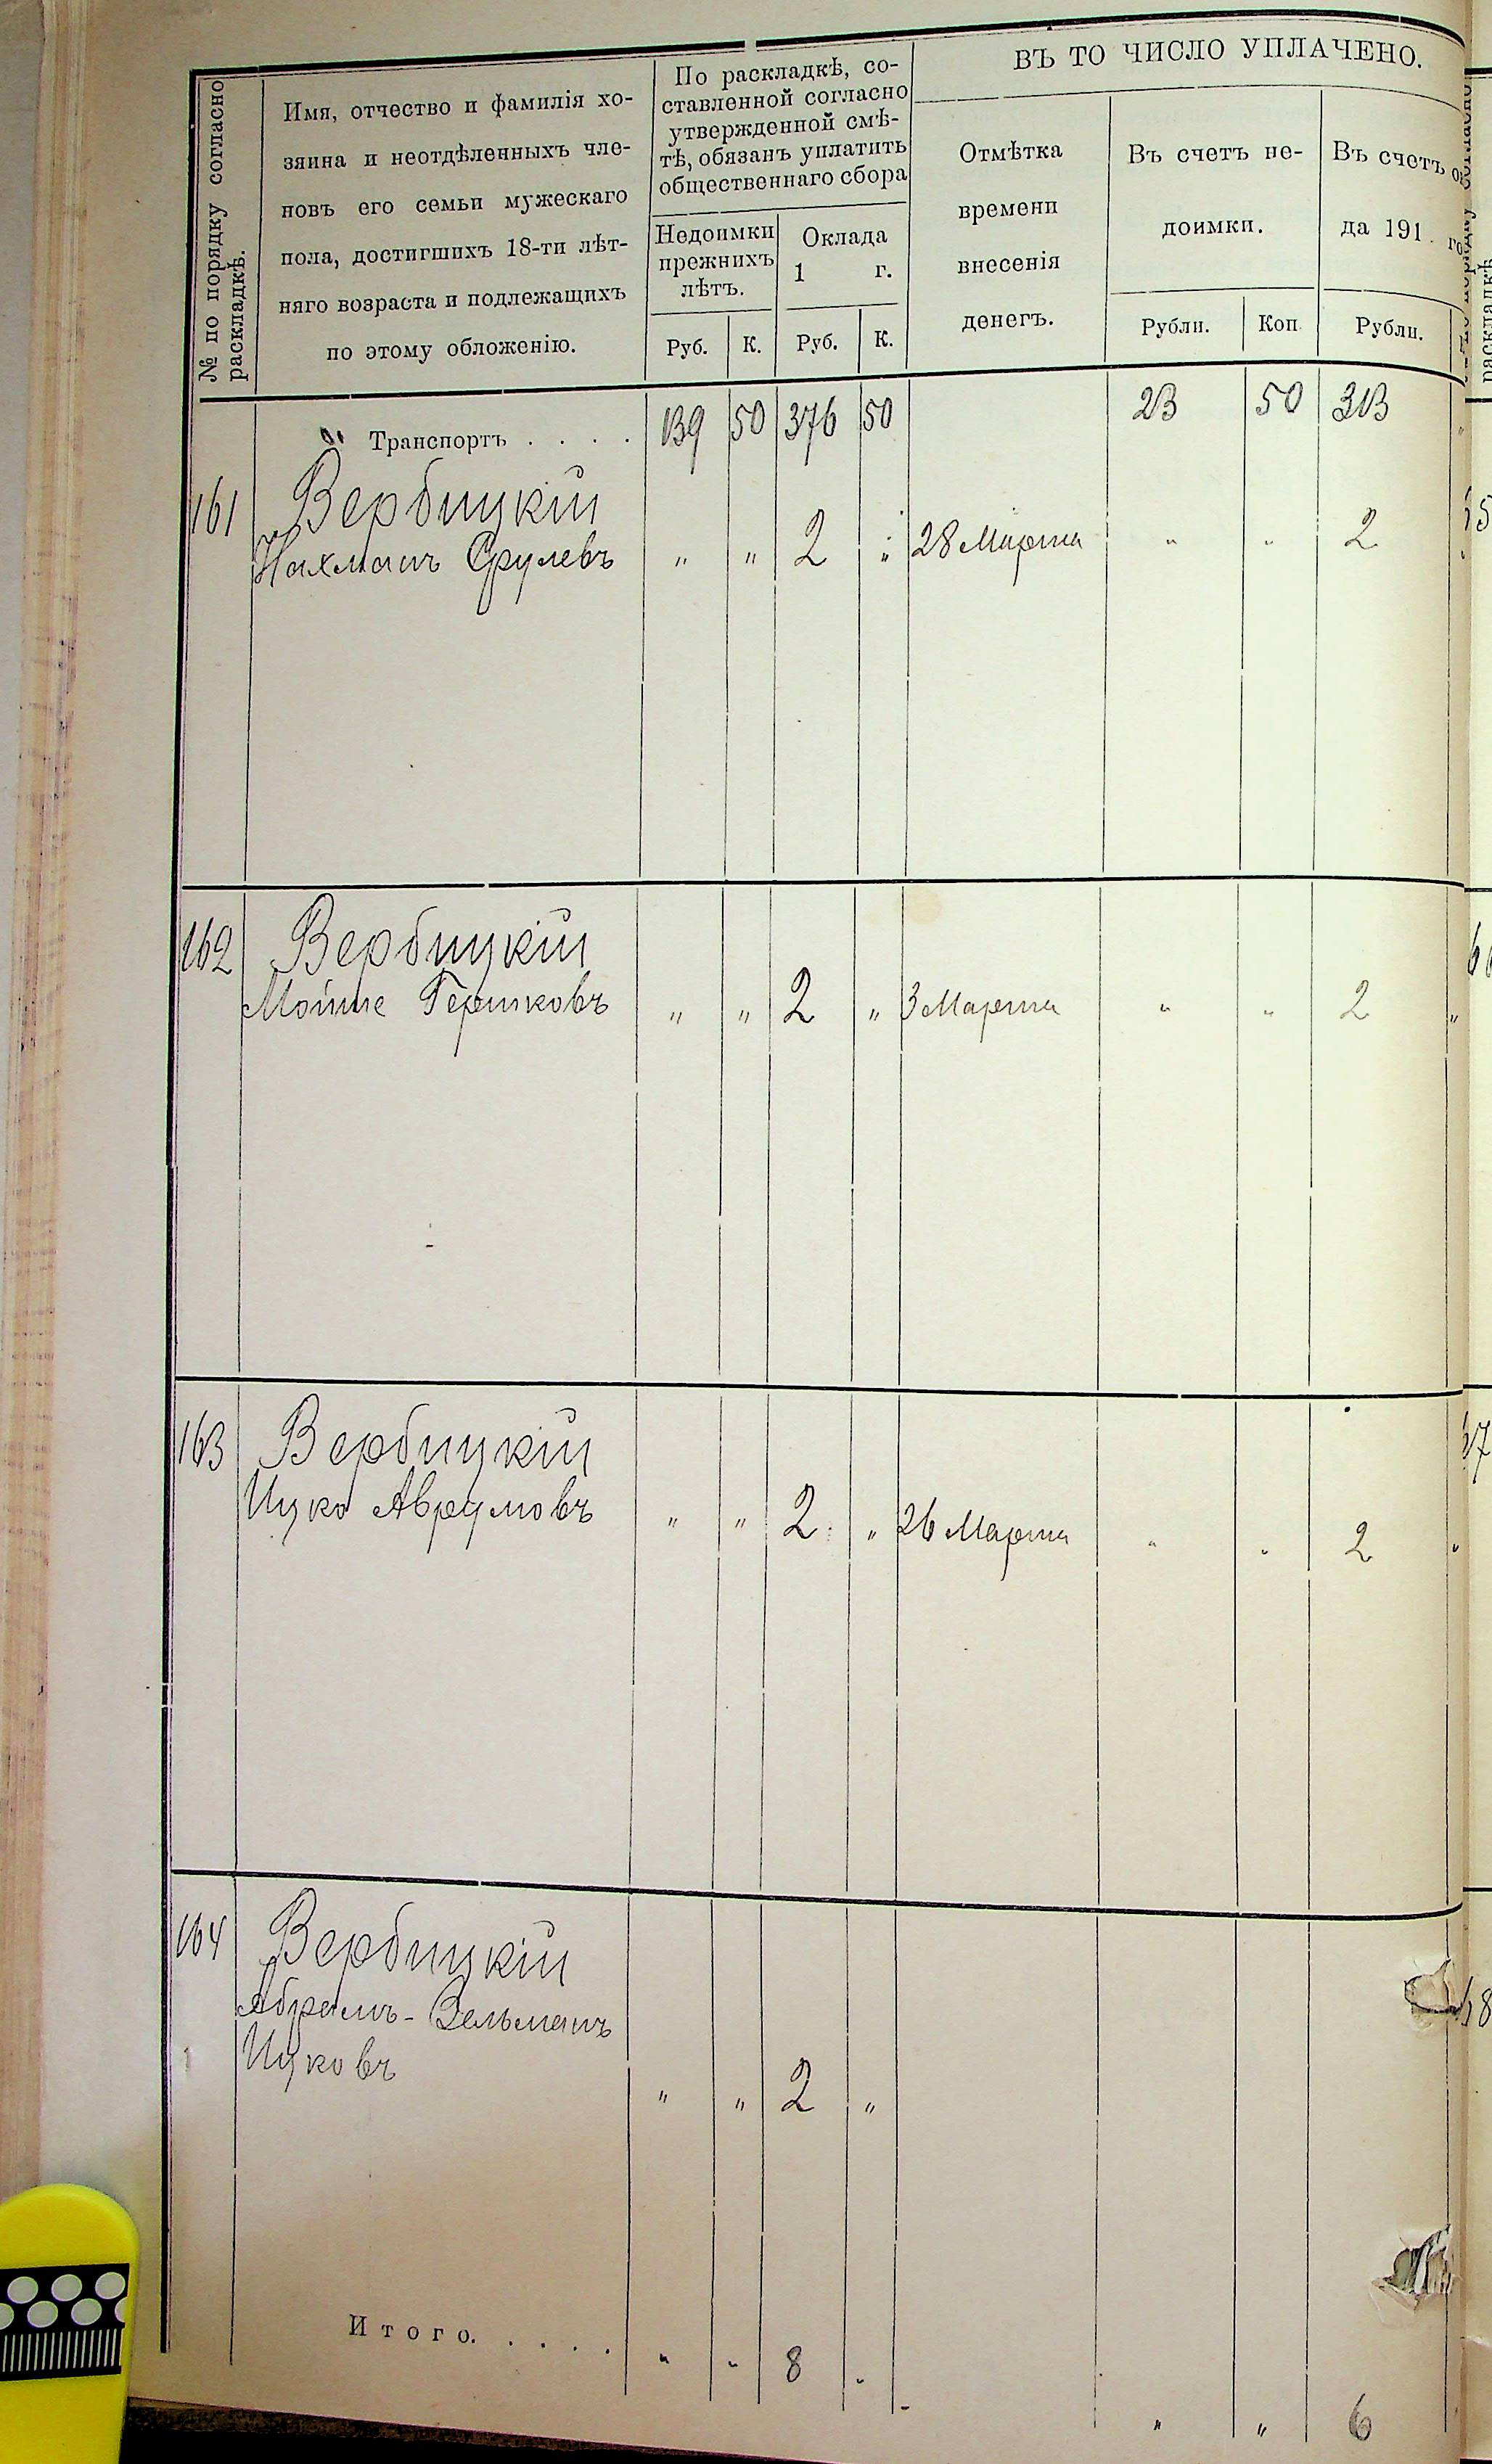 № по порядку согласно
раскладкѣ.
Имя, отчество и фамилія хо-
зяина и неотдѣленныхъ чле-
новъ его семьи мужескаго
пола, достигшихъ 18-ти лѣт-
няго возраста и подлежащихъ
по этому обложенію.
По раскладкѣ, со-
ставленной согласно
утвержденной смѣ-
тѣ, обязанъ уплатить
общественнаго сбора
Недоимки
прежнихъ
лѣтъ.
Руб. К.
Оклада
1 г.
Руб. К.
ВЪ ТО ЧИСЛО УПЛАЧЕНО.
Отмѣтка
времени
внесенія
денегъ.
Въ счетъ не-
доимки.
Рубли. Коп.
Въ счетъ
да 191 . го
Рубли.
Транспортъ . . . . 139 50 376 50 23 50 313
161 Вербицкій
Нахманъ Срулевъ „ „ 2 „ 28 Марта „ „ 2
162 Вербицкій
Мойше Гершковъ „ „ 2 „ 3 Марта „ „ 2 „
163 Вербицкій
Ицко Аврумовъ „ „ 2 „ 26 Марта „ „ 2 „
164 Вербицкій
Абрамъ-Зельманъ
Ицковъ „ „ 2 „
Итого. . . . . „ „ 8 „ „ „ 6